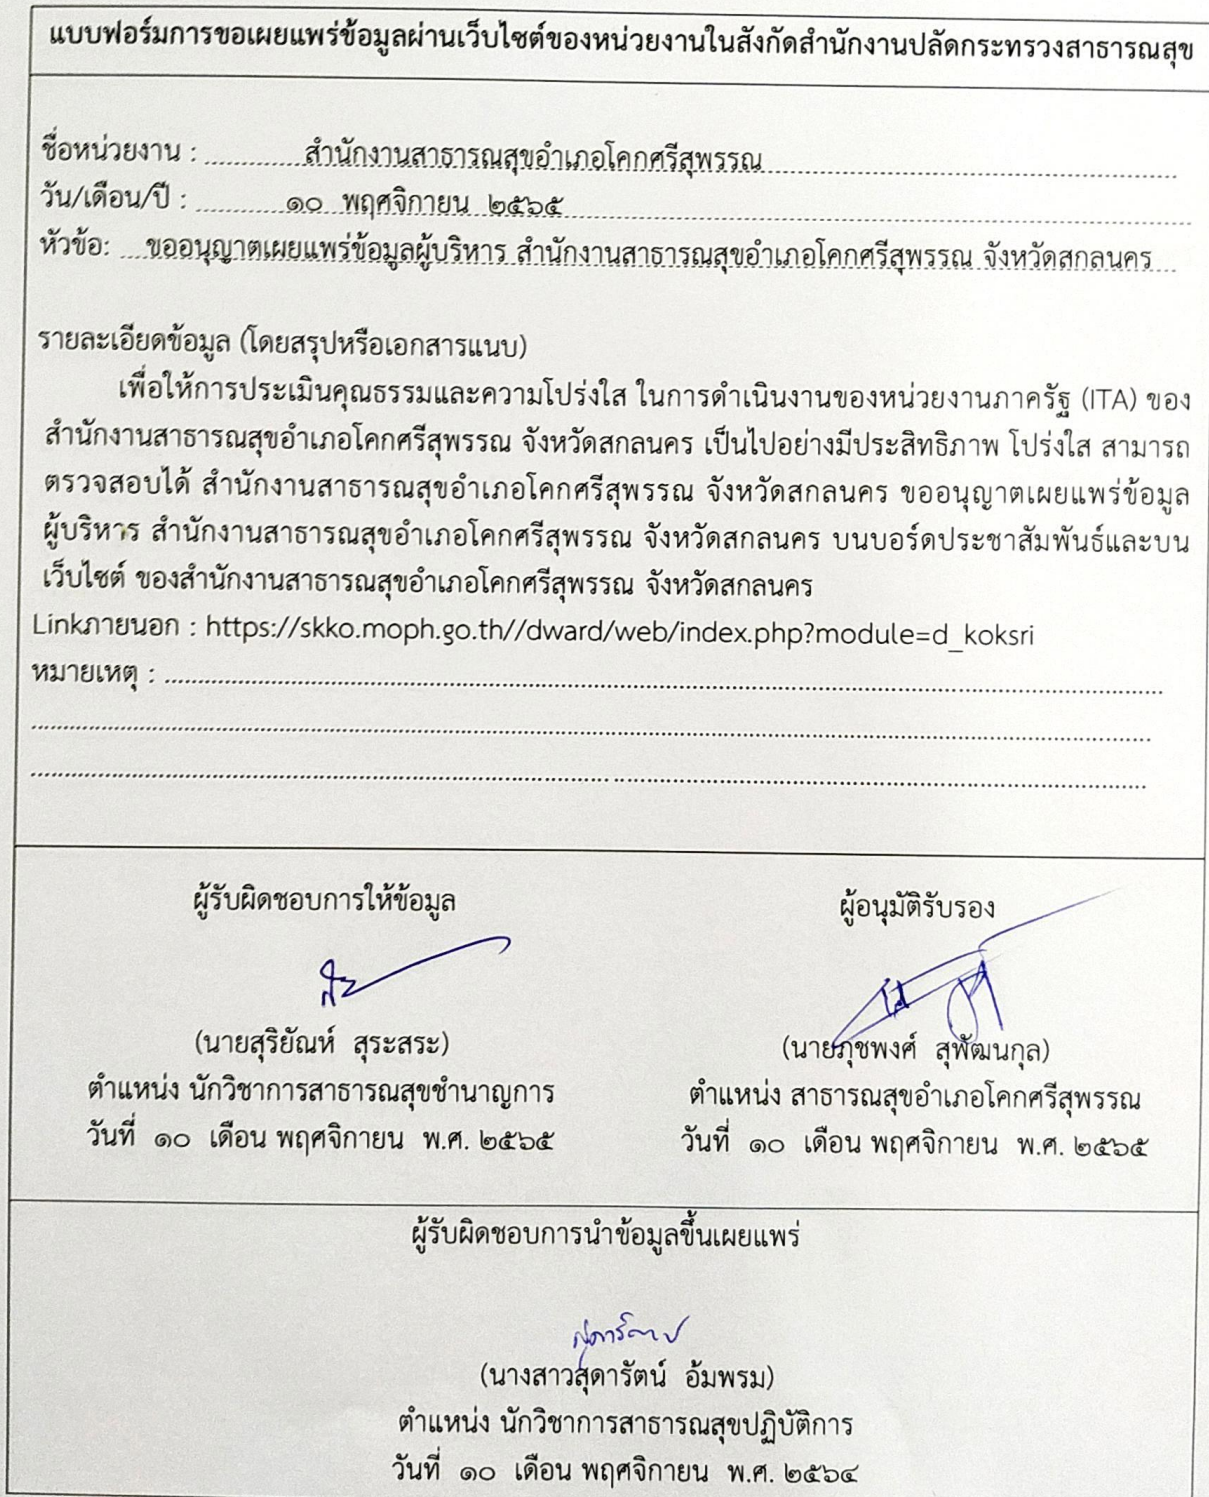 แบบฟอร์มการขอเผยแพร่ข้อมูลผ่านเว็บไซต์ของหน่วยงานในสังกัดสำนักงานปลัดกระทรวงสาธารณสุข
ชื่อหน่วยงาน : ............สำนักงานสาธารณสุขอำเภอโคกศรีสุพรรณ............
วัน/เดือน/ปี : ............๑๐ พฤศจิกายน ๒๕๖๕............
หัวข้อ: ....ขออนุญาตเผยแพร่ข้อมูลผู้บริหาร สำนักงานสาธารณสุขอำเภอโคกศรีสุพรรณ จังหวัดสกลนคร....
รายละเอียดข้อมูล (โดยสรุปหรือเอกสารแนบ)
เพื่อให้การประเมินคุณธรรมและความโปร่งใส ในการดำเนินงานของหน่วยงานภาครัฐ (ITA) ของ
สำนักงานสาธารณสุขอำเภอโคกศรีสุพรรณ จังหวัดสกลนคร เป็นไปอย่างมีประสิทธิภาพ โปร่งใส สามารถ
ตรวจสอบได้ สำนักงานสาธารณสุขอำเภอโคกศรีสุพรรณ จังหวัดสกลนคร ขออนุญาตเผยแพร่ข้อมูล
ผู้บริหาร สำนักงานสาธารณสุขอำเภอโคกศรีสุพรรณ จังหวัดสกลนคร บนบอร์ดประชาสัมพันธ์และบน
เว็บไซต์ ของสำนักงานสาธารณสุขอำเภอโคกศรีสุพรรณ จังหวัดสกลนคร
Linkภายนอก : https://skko.moph.go.th//dward/web/index.php?module=d_koksri
หมายเหตุ : ............
ผู้รับผิดชอบการให้ข้อมูล
(นายสุริยัณห์ สุระสระ)
ตำแหน่ง นักวิชาการสาธารณสุขชำนาญการ
วันที่ ๑๐ เดือน พฤศจิกายน พ.ศ. ๒๕๖๕
ผู้อนุมัติรับรอง
(นายภุชพงศ์ สุพัฒนกุล)
ตำแหน่ง สาธารณสุขอำเภอโคกศรีสุพรรณ
วันที่ ๑๐ เดือน พฤศจิกายน พ.ศ. ๒๕๖๕
ผู้รับผิดชอบการนำข้อมูลขึ้นเผยแพร่
(นางสาวสุดารัตน์ อ้มพรม)
ตำแหน่ง นักวิชาการสาธารณสุขปฏิบัติการ
วันที่ ๑๐ เดือน พฤศจิกายน พ.ศ. ๒๕๖๔